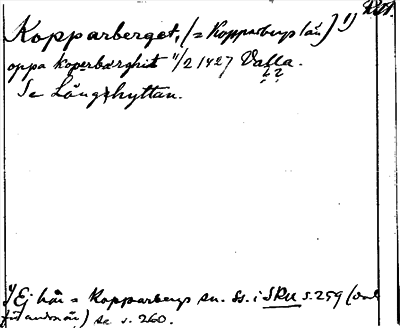 Kopparberget, (= Kopparbergs län) 1)
oppa koperbærghit 11/2 1427 Dalla.
Se Långshyttan.
1) Ej här = Kopparbergs sn. Ss. i SRU s. 259 (
) se s. 260.